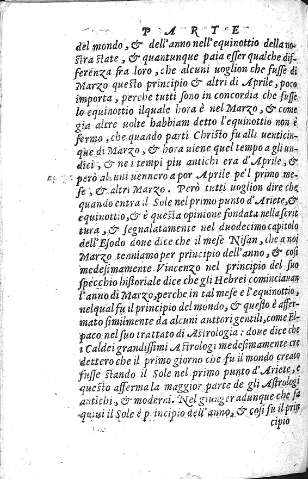 PARTE
del mondo, & dell'anno nell'equinottio della no-
stra state, & quantunque paia esser qualche dif-
ferenza fra loro, che alcuni uoglion che fusse di
Marzo questo principio & altri di Aprile, poco
importa, perche tutti sono in concordia che fusse
lo equinottio ilquale hora è nel Marzo, & come
gia altre uolte habbiam detto l'equinottio non è
fermo, che quando parti Christo fu alli uenticin-
que di Marzo, & hora uiene quel tempo a gli un-
dici, & ne i tempi piu antichi era d'Aprile, &
però alcuni uennero a por Aprile pe'l primo me-
se, & altri Marzo. Però tutti uoglion dire che
quando entra il Sole nel primo punto d'Ariete, &
equinottio, & è questa opinione fondata nella scrit
tura, & segnalatamente nel duodecimo capitolo
dell'Esodo doue dice che il mese Nisan, che a noi
Marzo tenniamo per principio dell'anno, & cosi
medesimamente Vincenzo nel principio del suo
specchio historiale dice che gli Hebrei cominciauan
l'anno di Marzo, perche in tal mese e l'equinottio,
nelqual fu il principio del mondo, & questo è affer-
mato similmente da alcuni auttori gentili, come El-
paco nel suo trattato di Astrologia: doue dice che
i Caldei grandissimi Astrologi medesimamente cre
dettero che il primo giorno che fu il mondo creato
fusse stando il Sole nel primo punto d'Ariete, e
questo afferma la maggior parte de gli Astrologi
antichi, & moderni. Nel giunger adunque che fa
quiui il Sole è principio dell'anno, & cosi fu il prin
cipio